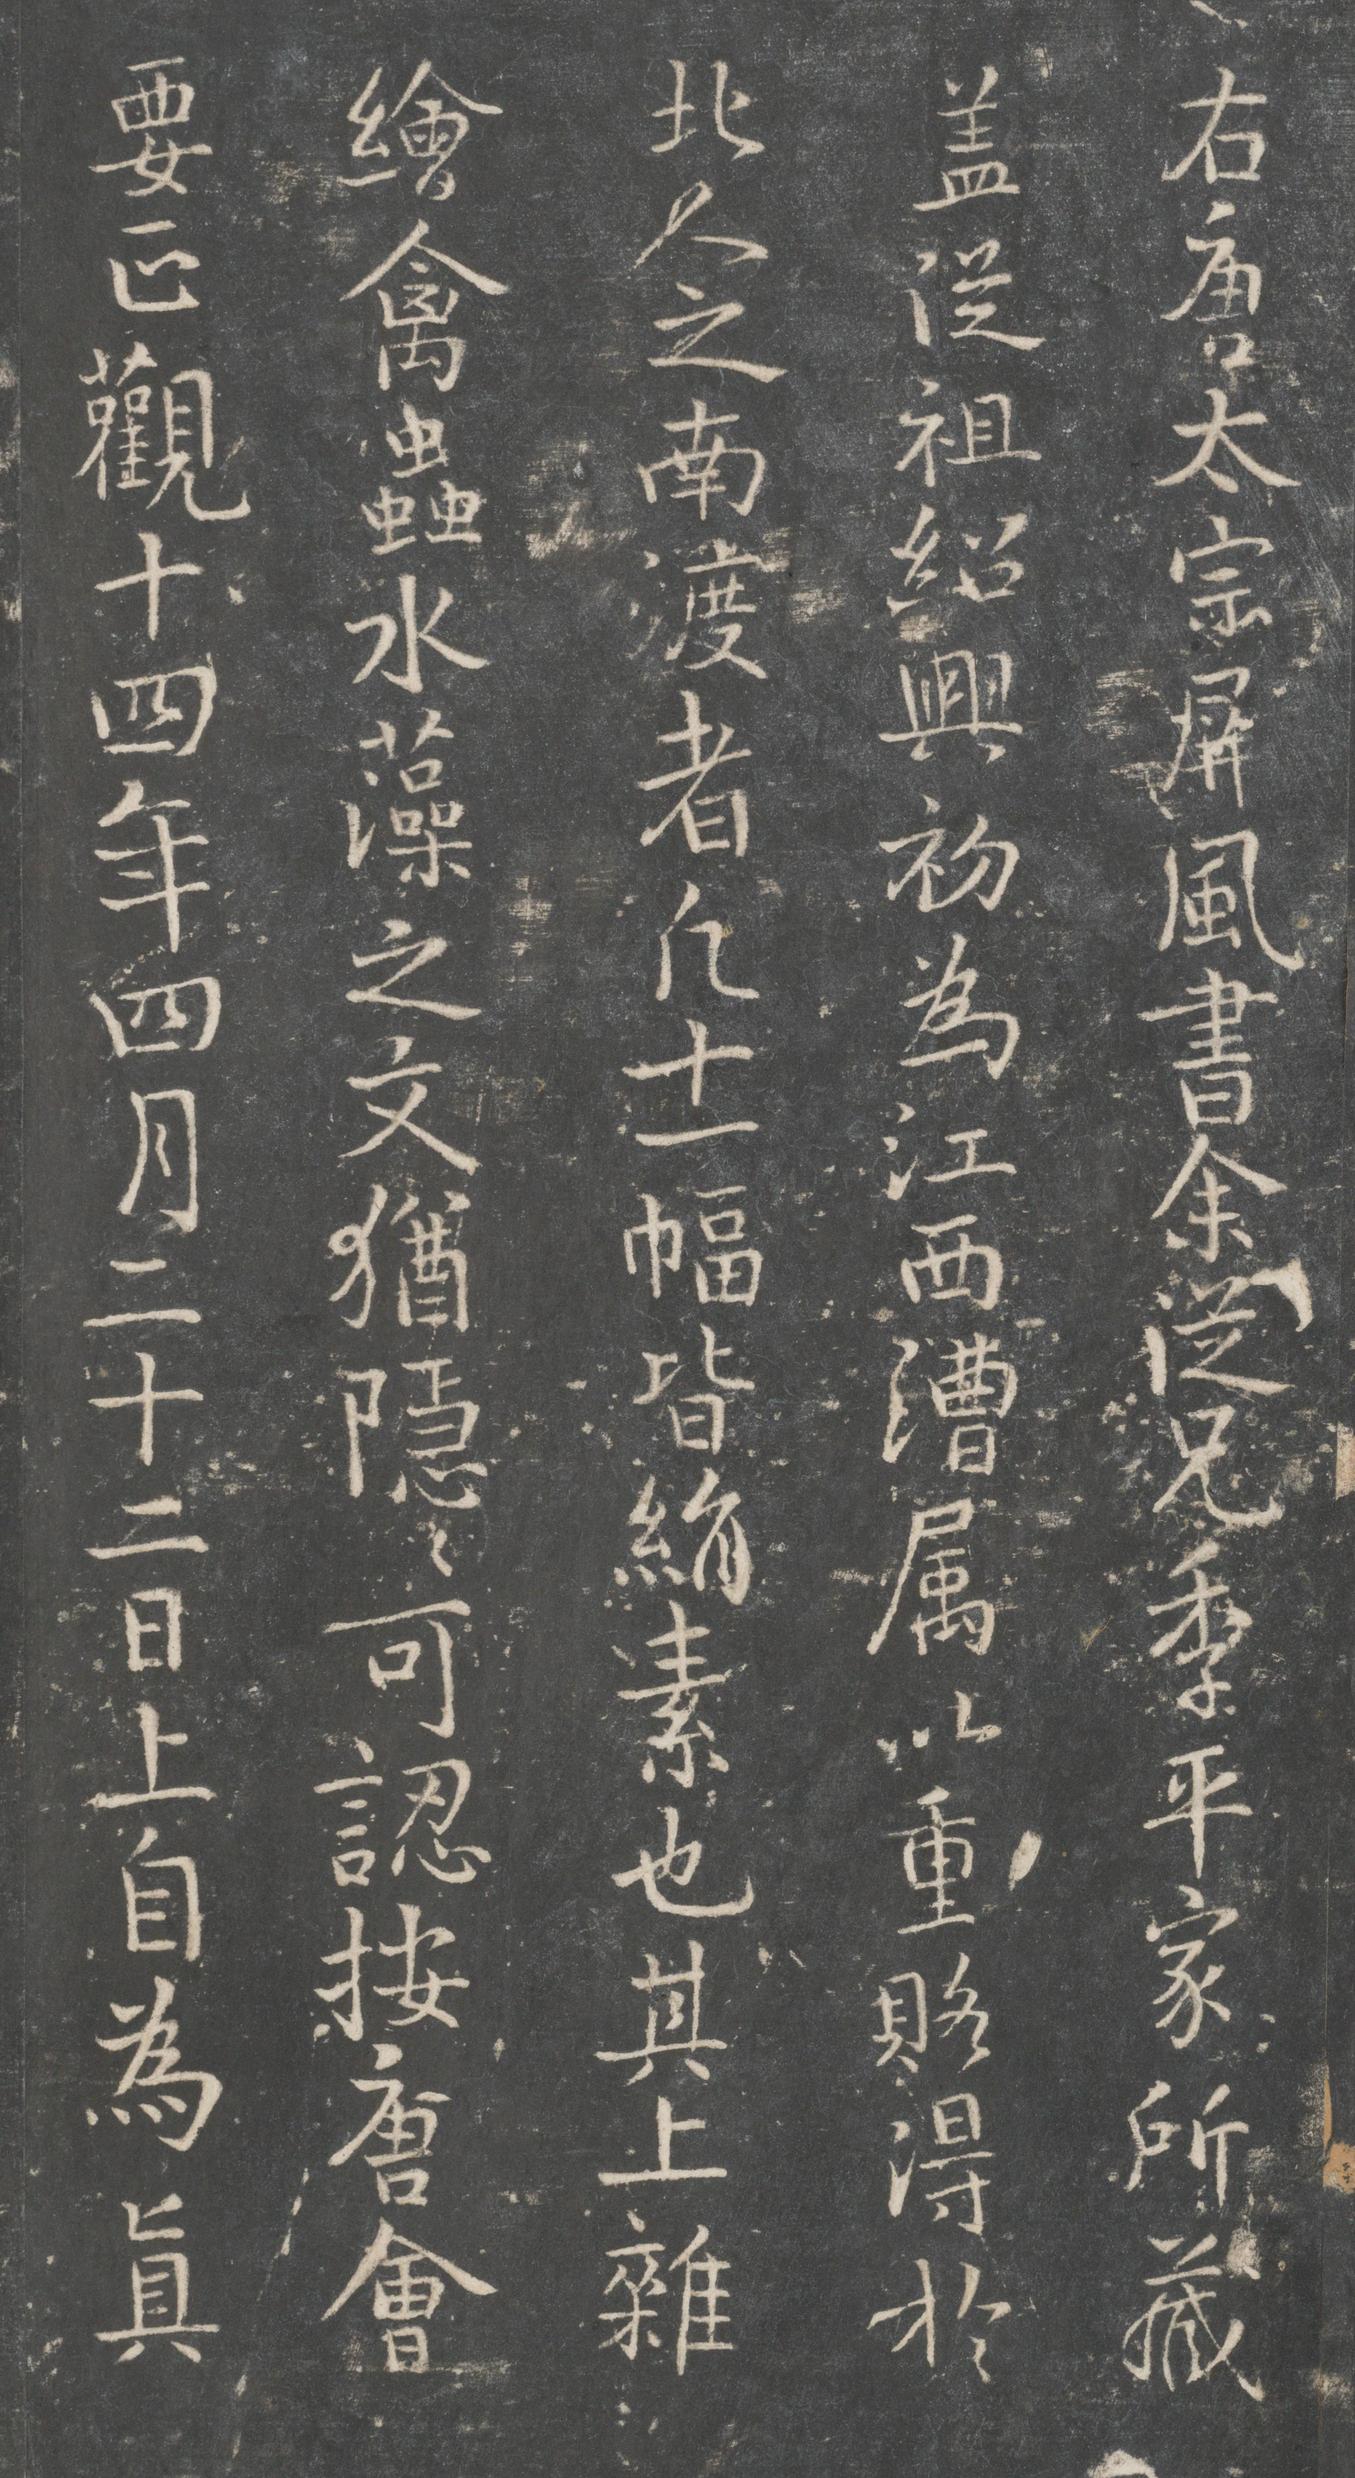 右唐太宗屏風書余從兄季平家所藏
盖從祖紹興初為江西漕属以重賂得於
北人之南渡者凡十一幅皆絹素也其上雜
繪禽蟲水藻之文猶隱〻可認按唐會
要正觀十四年四月二十二日上自為真